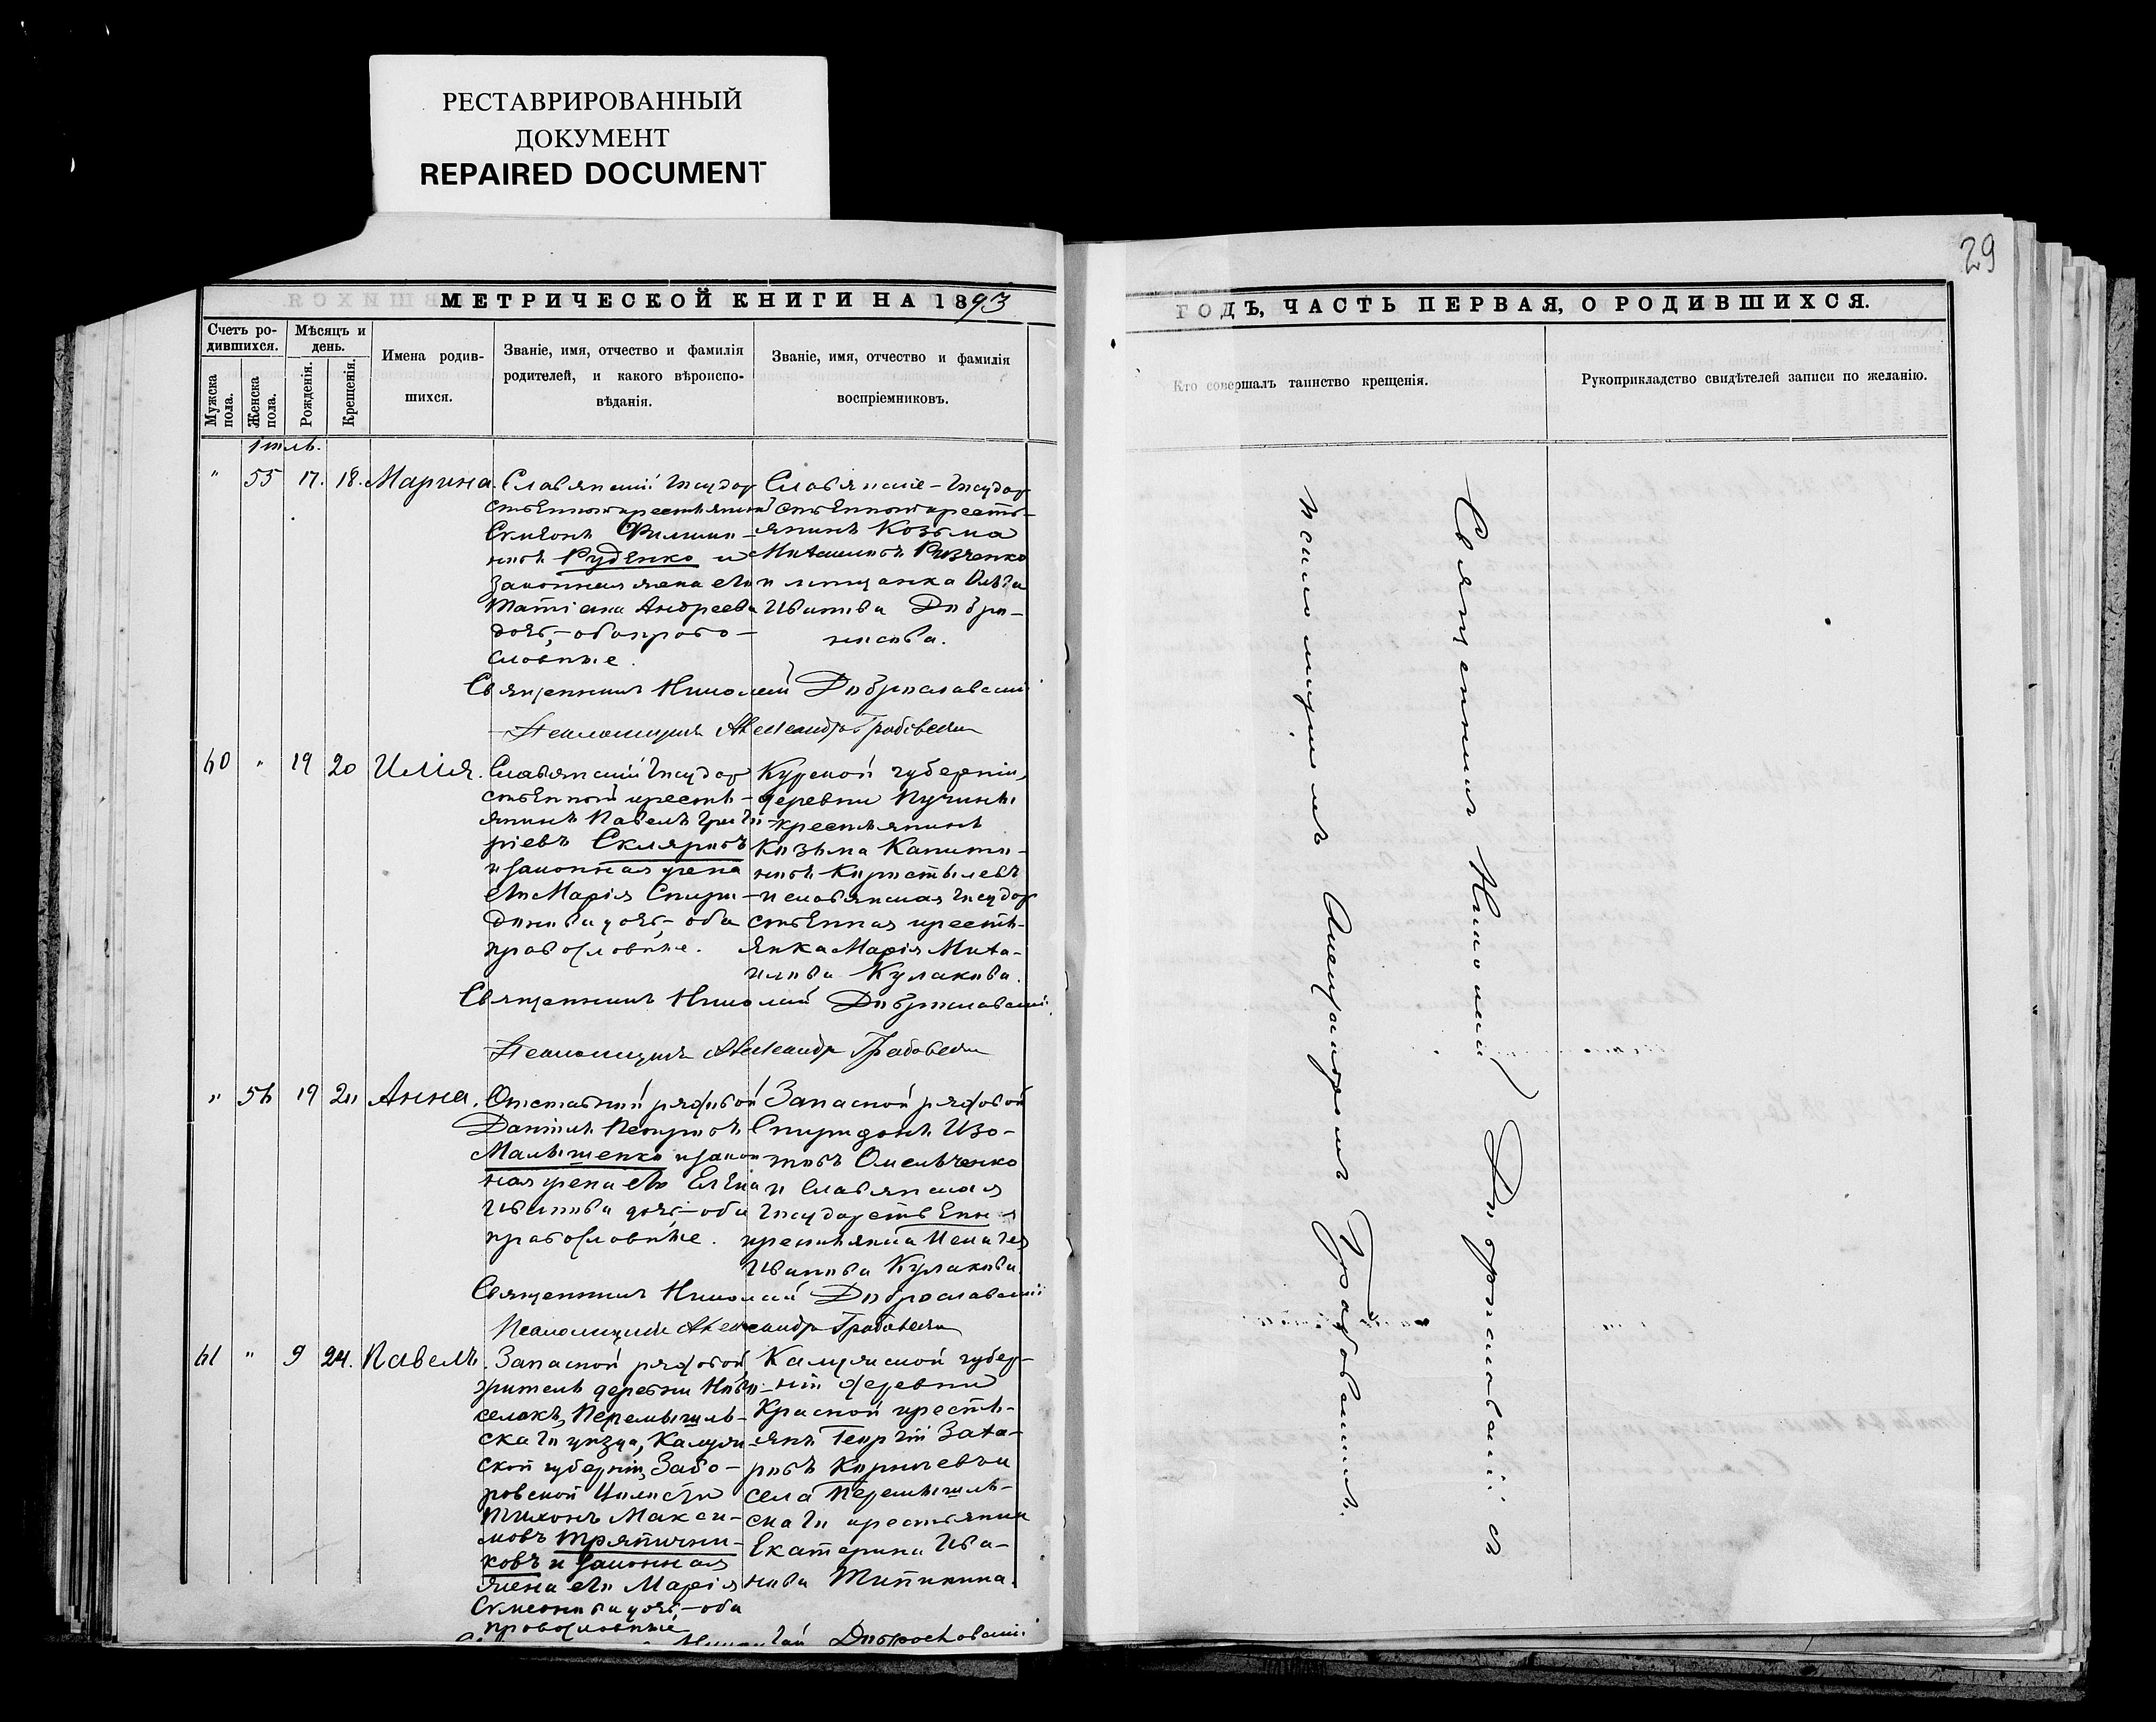 РЕСТАВРИРОВАННЫЙ
ДОКУМЕНТ
REPAIRED DOCUMENT
29
МЕТРИЧЕСКОЙ КНИГИ НА 1893
ГОДЪ, ЧАСТЬ ПЕРВАЯ, О РОДИВШИХСЯ.
Счетъ ро-
дившихся.
Мужска
пола.
Женска
пола.
Мѣсяцъ и
день.
Рожденія.
Крещенія.
Имена родив-
шихся.
Званіе, имя, отчество и фамилія
родителей, и какого вѣроиспо-
вѣданія.
Званіе, имя, отчество и фамилія
воспріемниковъ.
Кто совершалъ таинство крещенія.
Рукоприкладство свидѣтелей записи по желанію.
Іюль.
" 55 17. 18. Марина.
Славянскій Государ
ственной крестьянинъ
Симеонъ Филимо-
новъ Руденко и
законная жена его
Татіана Андреева
дочь, – оба право-
славные.
Славянскіе – Государ
ственной кресть-
янинъ Козьма
Михаиловъ
и мещанка Ольга
Иванова
Священникъ Николай Доброславскій
Псаломщикъ Александръ Грабовскій
60 " 19 20 Илія.
Славянскій Государ
ственной кресть-
янинъ Павелъ Григо
ріевъ Скляровъ
и законная жена
его Марія Спири-
донова дочь, – оба
православные.
Курской губерніи,
деревни
крестьянинъ
Козьма Капито-
новъ
и славянская Государ
ственная кресть-
янка Марія Миха-
илова Кулакова.
Священникъ Николай Доброславскій
Псаломщикъ Александръ Грабовскій
" 56 19 20 Анна.
Отставной рядовой
Даніилъ Петровъ
Малышенко и закон
ная жена его Елена
Иванова дочь, – оба
православные.
Запасной рядовой
Спиридонъ Изо-
товъ Омельченко
и Славянская
Государственная
крестьянка
Иванова Кулакова.
Священникъ Николай Доброславскій
Псаломщикъ Александръ Грабовскій
61 " 9 24. Павелъ.
Запасной рядовой
житель деревни Ново
селокъ, Перемышль-
скаго уѣзда, Калуж-
ской губерніи, Забо-
ровской Волости
Тихонъ Макси-
мовъ Тряпични-
ковъ и законная
жена его Марія
Симеонова дочь, – оба
православные
Калужской губер-
ніи деревни
Красной кресть-
янъ Георгій Заха-
ровъ
села Перемышль-
скаго крестьянка
Екатерина Ива-
нова
Николай Доброславскій
Священникъ Николай Доброславскій съ
псаломщикомъ Александромъ Грабовскимъ.